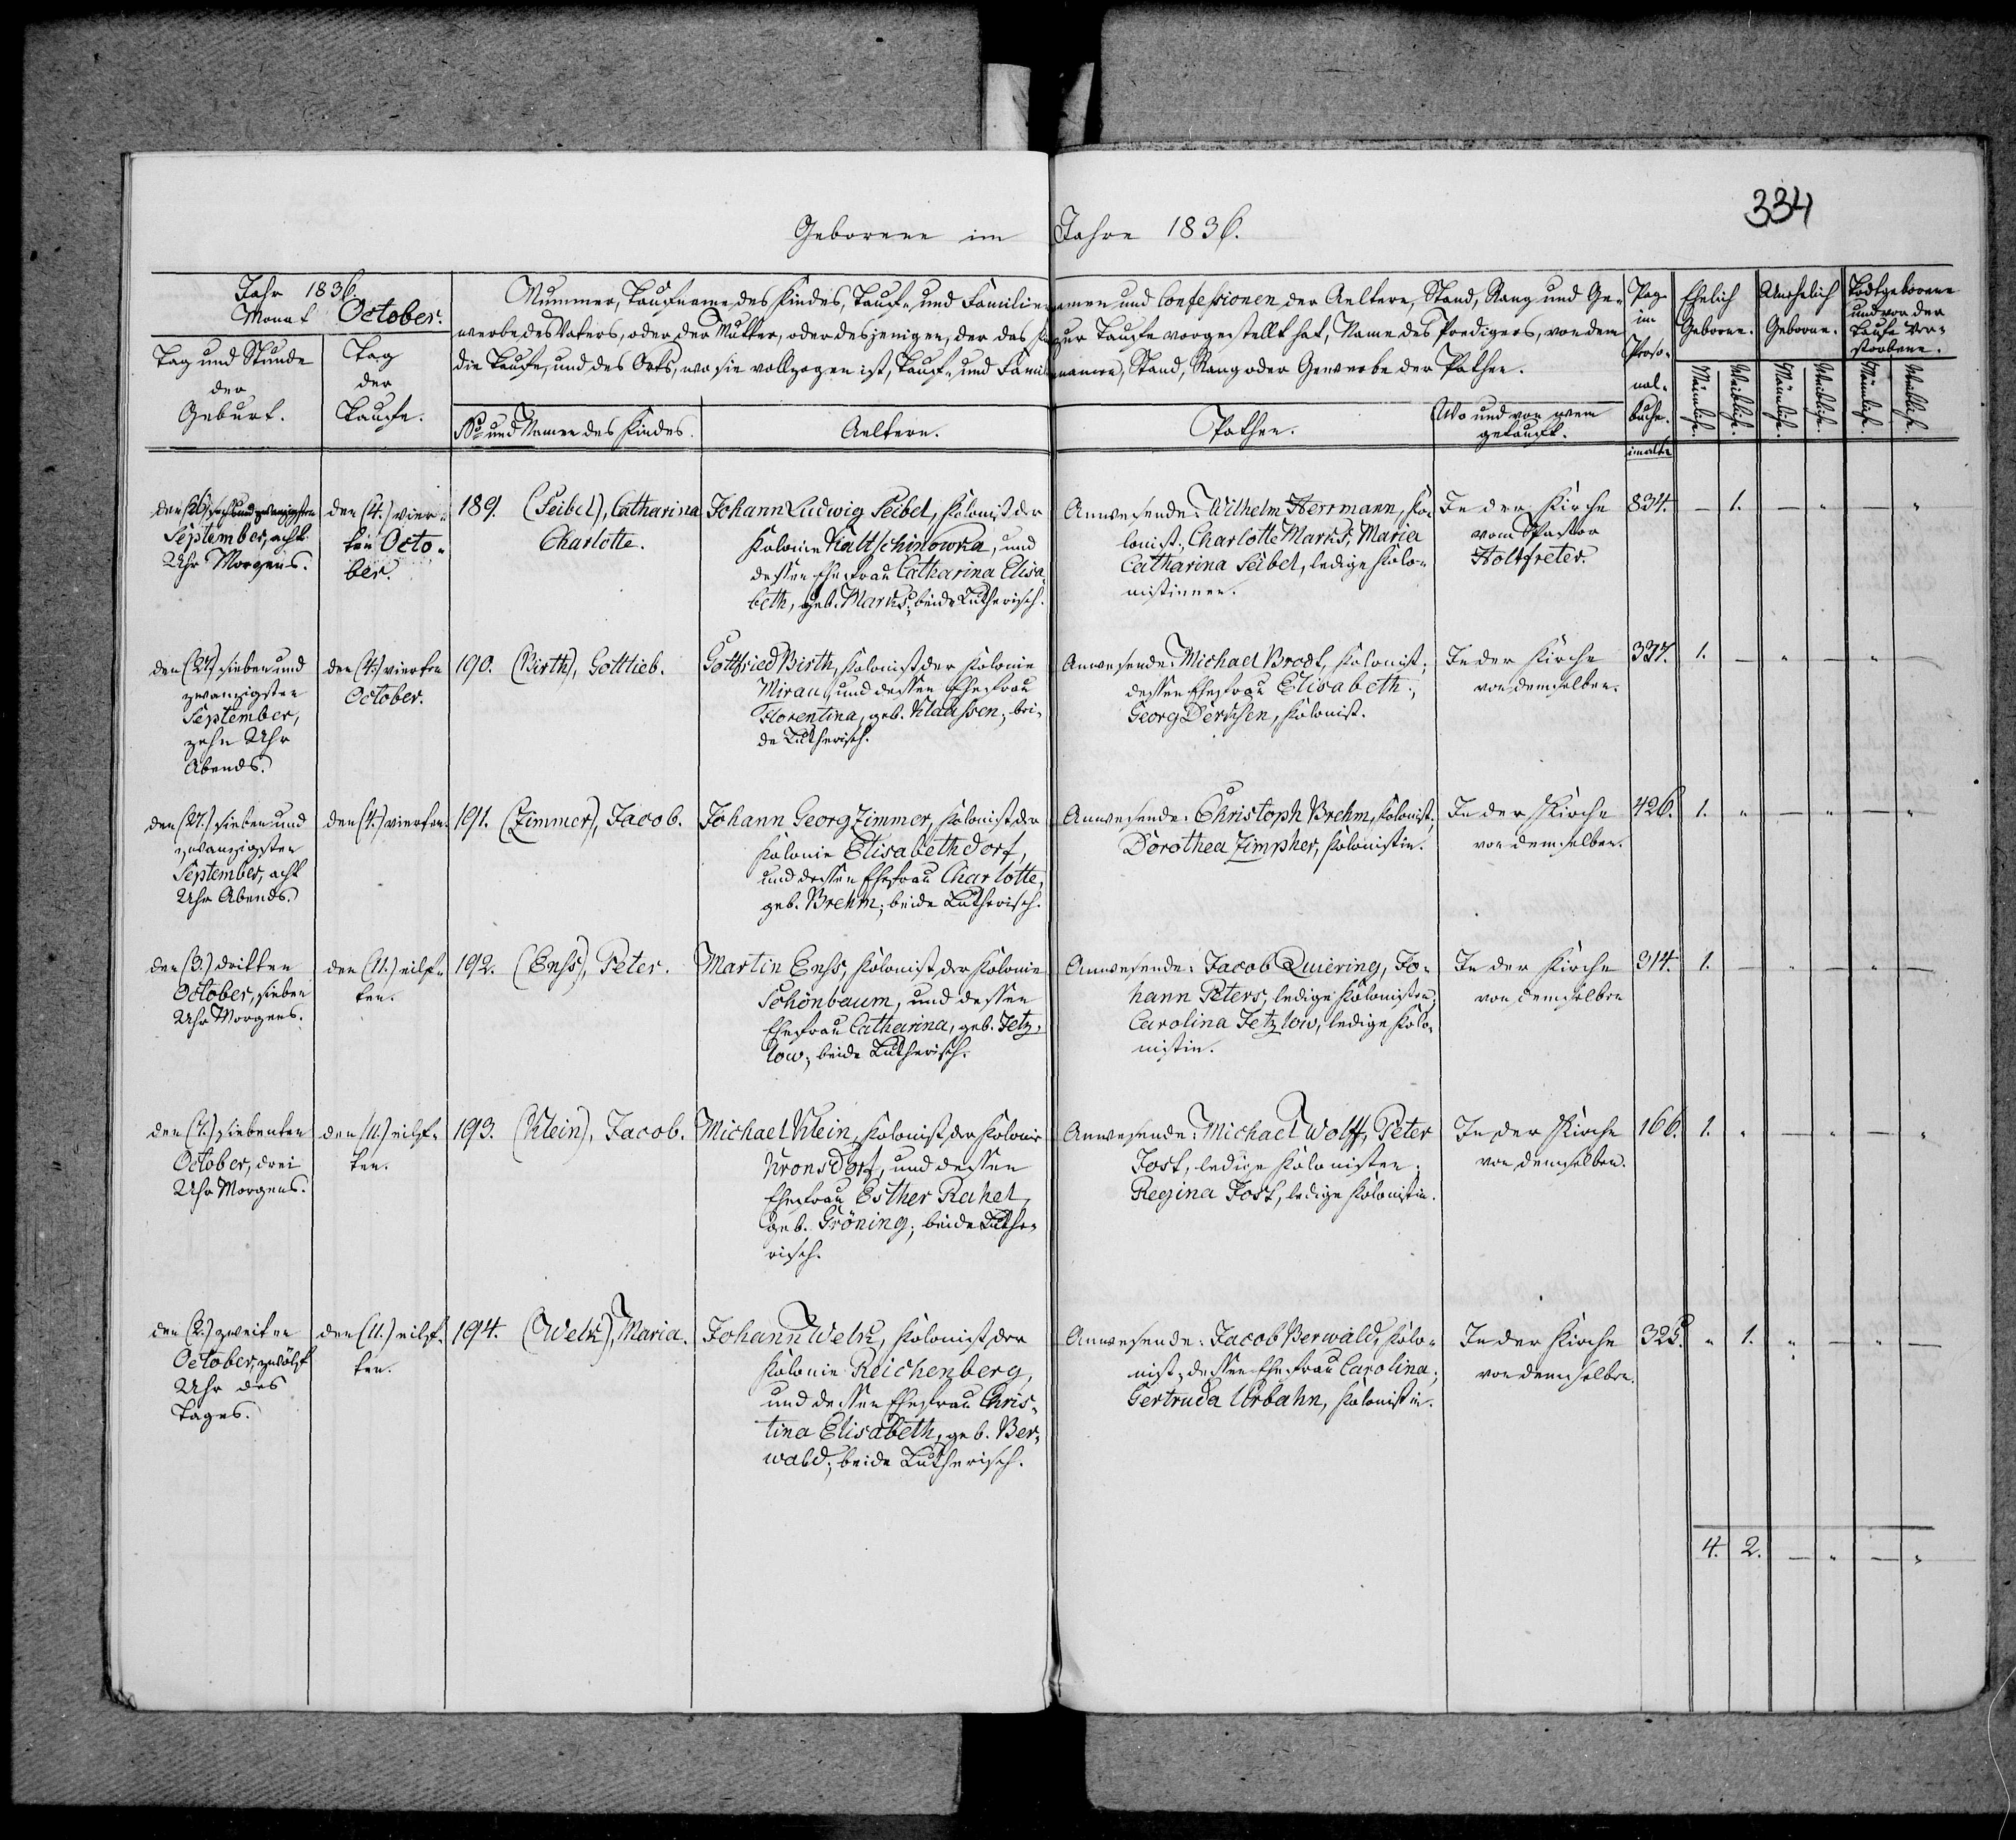 334
Geborene im Jahre 1836.
Jahr 1836.
Monat October.
Nummer, Taufname des Kindes, Tauf- und Familiennamen und Confessionen der Aeltern, Stand, Rang und Ge-
werbe des Vaters, oder der Mutter, oder desjenigen, der das Kind zur Taufe vorgestellt hat, Name des Predigers, von dem
die Taufe, und des Orts, wo sie vollzogen ist, Tauf- und Familiennamen, Stand, Rang oder Gewerbe der Pathen.
Tag und Stunde
der
Geburt.
Tag
der
Taufe.
No und Namen des Kindes.
Aeltern.
Pathen.
Wo und von wem
getauft.
Pag.
im
Perso-
nal-
buche.
im alten
Ehelich
Geborne.
Unehelich
Geborne.
Todtgeborene
und vor der
Taufe Ver-
storbene.
Männliche.
Weibliche.
Männliche.
Weibliche.
Männliche.
Weibliche.
den (26) sechsundzwanzigsten
September, acht
Uhr Morgens.
den (4.) vier-
ten Octo-
ber.
189. (Seibel), Catharina
Charlotte.
Johann Ludwig Seibel, Kolonist der
Kolonie Kaltschinowka, und
dessen Ehefrau Catharina Elisa-
beth, geb. Marks; beide Lutherisch.
Anwesende: Wilhelm Herrmann, Ko-
lonist; Charlotte Marks, Maria
Catharina Seibel, ledige Kolo-
nistinnen.
In der Kirche
vom Pastor
Holtfreter.
834. — 1. — " — "
den (27.) sieben und
zwanzigsten
September,
zehn Uhr
Abends.
den (4.) vierten
October.
190. (Birth), Gottlieb.
Gottfried Birth, Kolonist der Kolonie
Mirau, und dessen Ehefrau
Florentina, geb. Klaassen; bei-
de Lutherisch.
Anwesende: Michael Brodt, Kolonist;
dessen Ehefrau Elisabeth;
Georg Derksen, Kolonist.
In der Kirche
von demselben.
337. 1. — " — " —
den (27.) sieben und
zwanzigsten
September, acht
Uhr Abends.
den (4.) vierten.
191. (Zimmer), Jacob.
Johann Georg Zimmer, Kolonist der
Kolonie Elisabethdorf,
und dessen Ehefrau Charlotte,
geb. Brehm; beide Lutherisch.
Anwesende: Christoph Brehm, Kolonist;
Dorothea Zimpher, Kolonistin.
In der Kirche
von demselben.
426. 1. " — " — "
den (3.) dritten
October, sieben
Uhr Morgens.
den (11.) eilf-
ten.
192. (Enss), Peter.
Martin Enss, Kolonist der Kolonie
Schönbaum, und dessen
Ehefrau Catharina, geb. Jetz-
low; beide Lutherisch.
Anwesende: Jacob Quiering, Jo-
hann Peters, ledige Kolonisten;
Carolina Jetzlow, ledige Kolo-
nistin.
In der Kirche
von demselben
314. 1. — " — " —
den (7.) siebenten
October, drei
Uhr Morgens.
den (11.) eilf-
ten.
193. (Klein), Jacob.
Michael Klein, Kolonist der Kolonie
Kronsdorf, und dessen
Ehefrau Esther Rahel,
geb. Gröning; beide Luthe-
risch.
Anwesende: Michael Wolff, Peter
Jost, ledige Kolonisten;
Regina Jost, ledige Kolonistin.
In der Kirche
von demselben.
166. 1. " — " — "
den (2.) zweiten
October, zwölf
Uhr des
Tages.
den (11.) eilf-
ten.
194. (Welk), Maria.
Johann Welk, Kolonist der
Kolonie Reichenberg,
und dessen Ehefrau Chris-
tina Elisabeth, geb. Ber-
wald; beide Lutherisch.
Anwesende: Jacob Berwald, Kolo-
nist; dessen Ehefrau Carolina;
Gertruda Urbahn, Kolonistin.
In der Kirche
von demselben.
325. " 1. " — " —
4. 2. — " — "